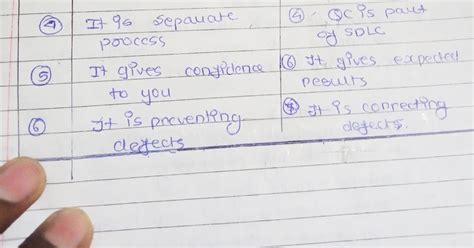 ④ It is separate
process
⑤ It gives confidence
to you
⑥ It is preventing
defects
④ QC is part
of SDLC
⑥ It gives expected
results
⑦ It is correcting
defects.